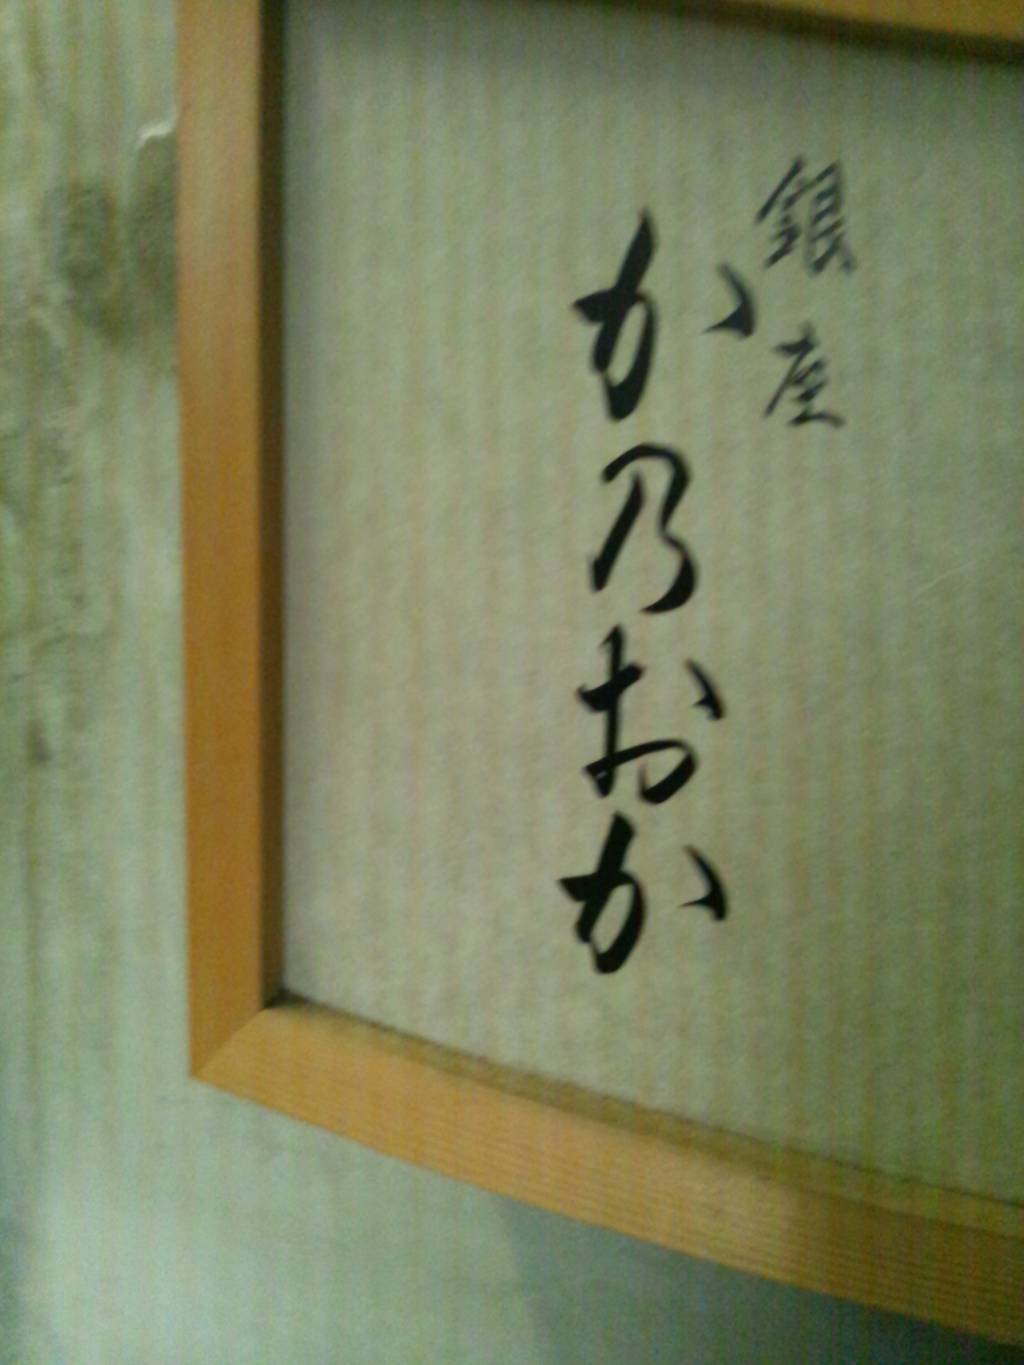 銀座
か乃おか